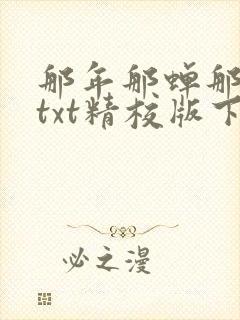 那年那蝉那
txt精校版下
必之漫